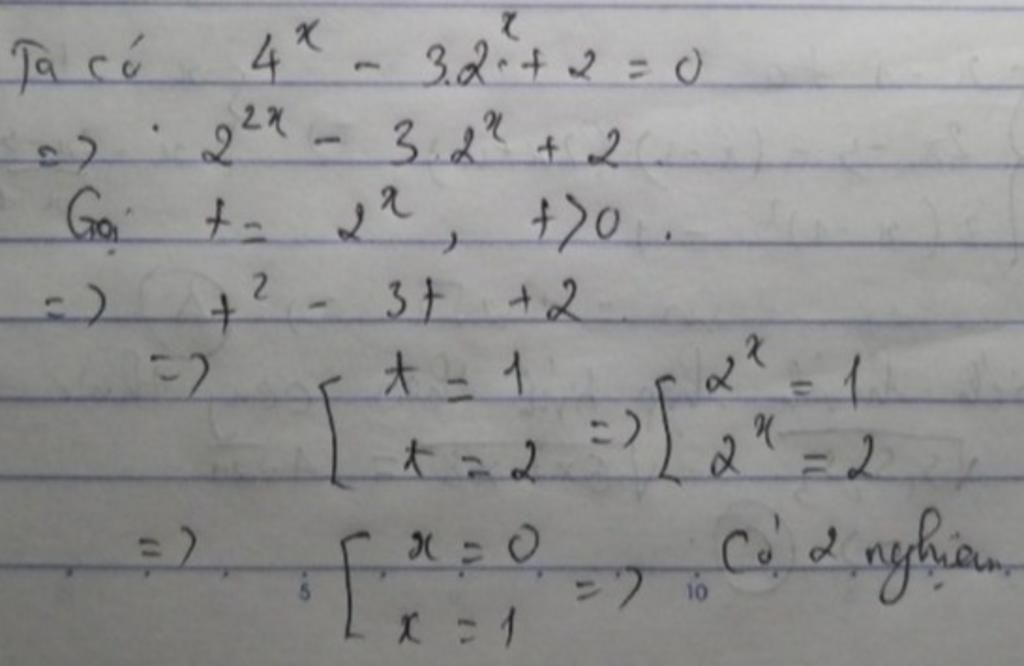 Ta có 4^x - 3.2^x + 2 = 0
=> 2^{2x} - 3.2^x + 2
Gọi t = 2^x, t>0.
=> t^2 - 3t + 2
=> [ t = 1 => [ 2^x = 1
t = 2 2^x = 2
=> [ x = 0 => Có 2 nghiệm
x = 1
5 10